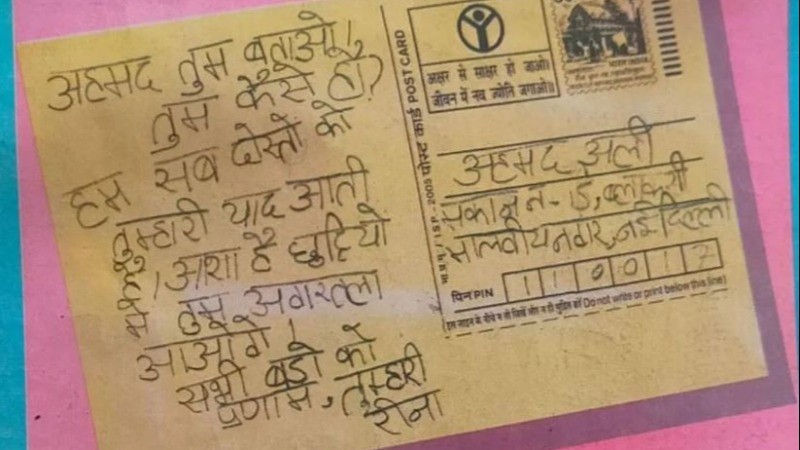 अहमद तुम बताओ!
तुम कैसे हो?
हम सब दोस्तो को
तुम्हारी याद आती
है। आशा है छुट्टियो
मे तुम अगरतला
आओगे।
सभी बडो को
प्रणाम, तुम्हारी
रीना
पोस्ट कार्ड POST CARD
अक्षर से साक्षर हो जाओ।
जीवन में नव ज्योति जगाओ॥
अहमद अली
मकान न- 15, ब्लाक-सी
मालवीयनगर, नई दिल्ली
पिन PIN 110017
(इस लाइन के नीचे न तो लिखें और न ही मुद्रित करें Do not write or print below this line)